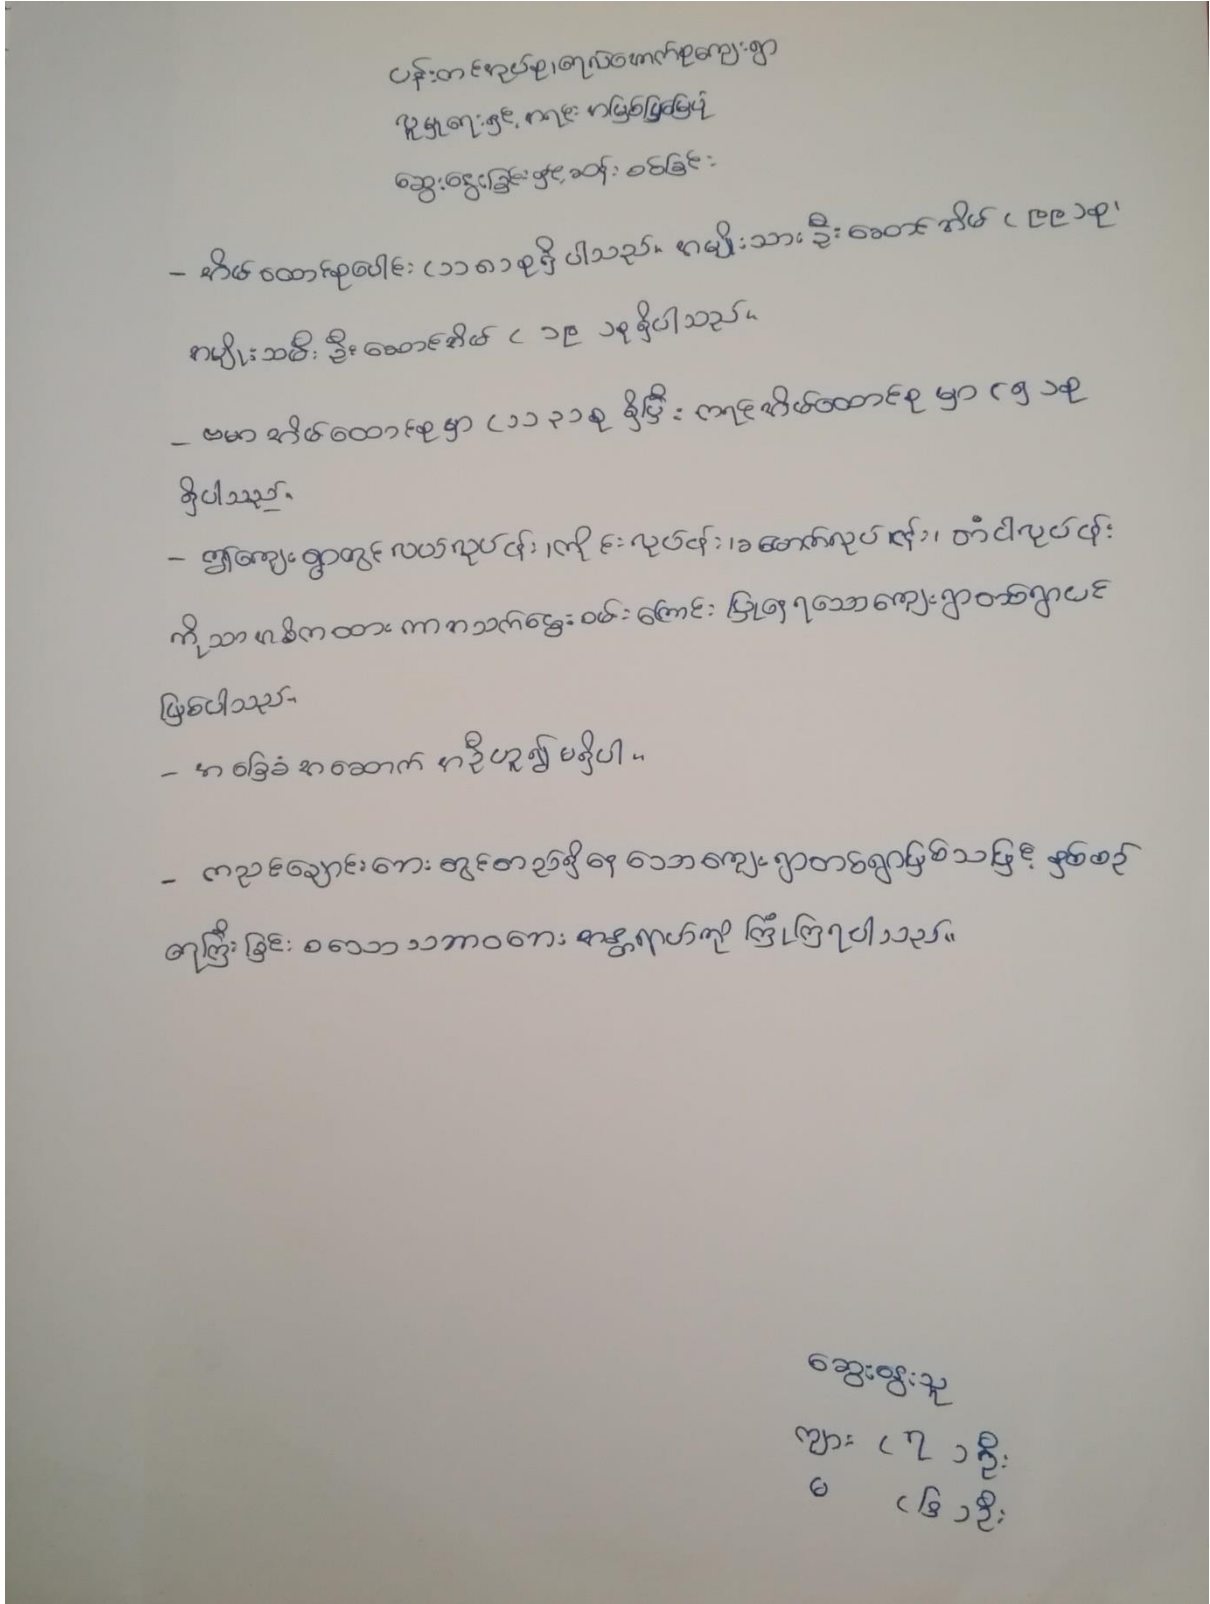 ပန်းတင်အုပ်စု၊ရေလဲဖောက်စုကျေးရွာ
လူမှုရေးနှင့် စာရင်း အဖြစ်ပြမြေပုံ
ဆွေးနွေးခြင်းနှင့်ဆန်းစစ်ခြင်း
- အိမ်ထောင်စုပေါင်း (၁၁၈)စုရှိပါသည်။ အမျိုးသားဦးဆောင်အိမ် (၉၉)စု၊
အမျိုးသမီးဦးဆောင်အိမ် (၁၉)စုရှိပါသည်။
- ဗမာအိမ်ထောင်စုမှာ (၁၁၃)စု ရှိပြီး ကရင်အိမ်ထောင်စုမှာ (၅)စု
ရှိပါသည်။
- ဤကျေးရွာတွင် လယ်လုပ်ငန်း၊ကိုင်းလုပ်ငန်း၊ခမောက်လုပ်ငန်း၊ တံငါလုပ်ငန်း
ကိုသာ အဓိကထားကာအသက်မွေးဝမ်းကြောင်း ပြုနေရသောကျေးရွာတစ်ရွာပင်
ဖြစ်ပါသည်။
- အခြေခံအဆောက်အဦဟူ၍ မရှိပါ။
- ကညင်ချောင်းဘေးတွင်တည်ရှိနေသောကျေးရွာတစ်ရွာဖြစ်သဖြင့် နှစ်စဉ်
ရေကြီးခြင်း စသောသဘာဝဘေးအန္တရာယ်ကို ကြုံကြရပါသည်။
ဆွေးနွေးသူ
ကျား (၇)ဦး
မ (၆)ဦး